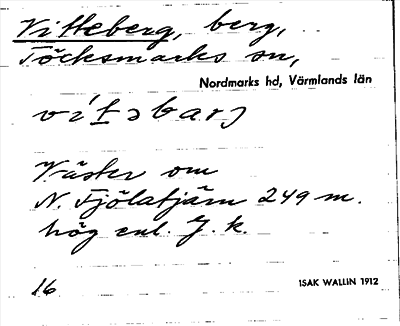 Vitteberg, berg,
Töcksmarks sn,
Nordmarks hd, Värmlands län
vi´təbarj
Väster om
N. Fjölatjäm 249 m.
hög enl. J. k.
16
ISAK WALLIN 1912